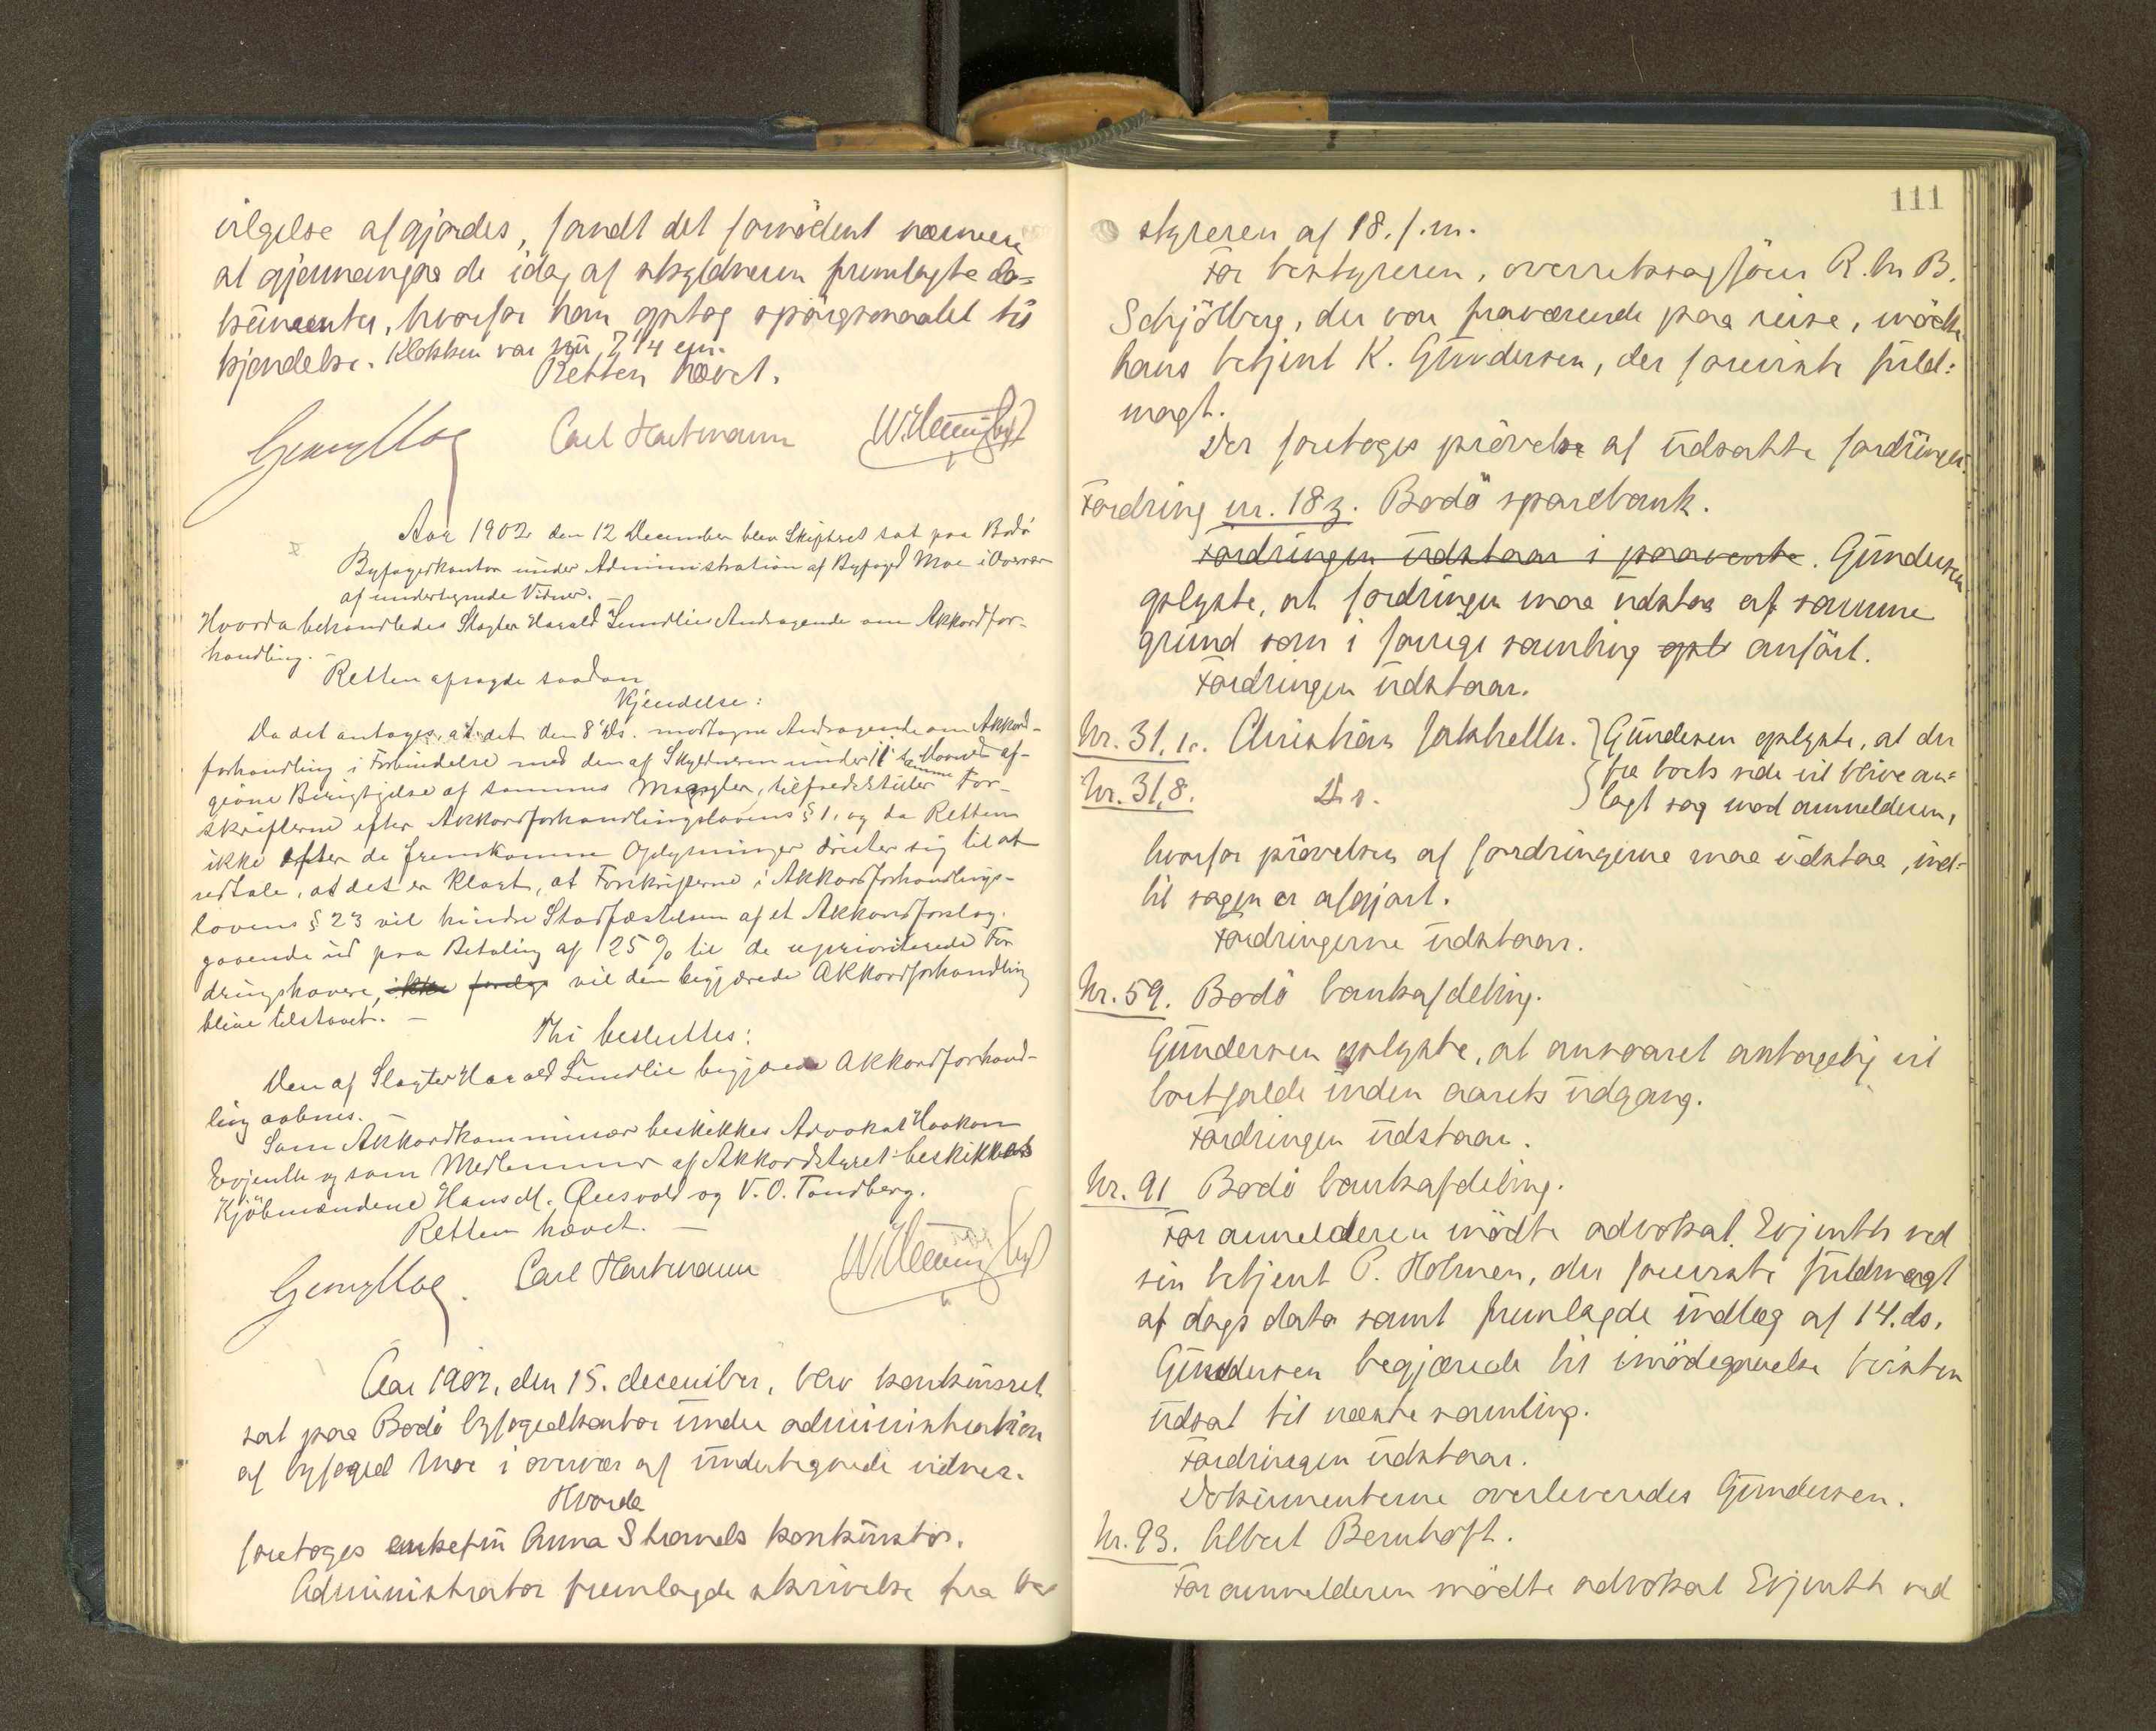 vilgelse afgjordes, fandt det fornødent nærmere
at gjennemgaa de idag af skyldneren fremlagte do-
kumenter, hvorfor han optog spørgsmaalet til
kjendelse. Klokken var nu 7 1/4 em.
Retten hævet.
Georg Moe Carl Hartmann
Aar 1902 den 12 December blev Skifteret sat paa Bodø
Byfogedkontor under Administration af Byfoged Moe i Overvær
af undertegnede Vidner. –
Hvorda behandledes Slagter Harald Lundlies Andragende om Akkordfor-
handling. –
Retten afsagde saadan
Kjendelse:
Da det antages, at det den 8' ds. modtagne Andragende om Akkord-
forhandling i Forbindelse med den af Skyldneren under 11' ds. samme Maaned af-
givne Berigtigelse af sammes Mangler, tilfredsstiller For-
skrifterne efter Akkordforhandlingslovens § 1, og da Retten
ikke efter de fremkomne Oplysninger drister sig til at
udtale, at det er klart, at Forskrifterne i Akkordforhandlings-
lovens § 23 vil hindre Stadfæstelsen af et Akkordforslag,
gaaende ud paa Betaling af 25 % til de uprioriterede For
dringshavere, ikke vil den begjærede Akkordforhandling
blive tilstaaet. –
Thi besluttes:
Den af Slagter Harald Lundlie begjærede Akkordforhand-
ling aabnes. –
Som Akkordkommissær beskikkes Advokat Haakon
Evjenth og som Medlemmer af Akkordstyret beskikkes
Kjøbmændene Hans M. Qvesvold og V. O. Tandberg.
Retten hævet. –
Georg Moe. Carl Hartmann
Aar 1902, den 15. december, blev konkursret
sat paa Bodø byfogedkontor under administration
af byfoged Moe i overvær af undertegnede vidner.
Hvorda
foretoges enkefru Anna Strands konkursbo.
Administrator fremlagde skrivelse fra be
111
styreren af 18. f.m.
For bestyreren, overretssagfører R. M. B.
Schjølberg, der var fraværende paa reise, mødte
hans betjent K. Gundersen, der foreviste fuld:
magt.
Der foretoges prøvelse af udsatte fordringer.
Fordring nr. 183. Bodø sparebank.
Fordringen udstaar i paavente. Gundersen
oplyste, at fordringen maa udstaa af samme
grund som i forrige samling opl anført.
Fordringen udstaar.
Nr. 31, 1c. Christian Jakhelln. } Gundersen oplyste, at der
Nr. 31, 8. Ds. fra boets side vil blive an=
lagt sag mod anmelderen,
hvorfor prøvelsen af fordringerne maa udstaa, ind=
til sagen er afgjort.
Fordringerne udstaar.
Nr. 59. Bodø bankafdeling.
Gundersen oplyste, at ansvaret antagelig vil
bortfalde inden aarets udgang.
Fordringen udstaar.
Nr. 91 Bodø bankafdeling.
For anmelderen mødte advokat Evjenth ved
sin betjent P. Holmen, der foreviste fuldmagt
af dags dato samt fremlagde indlæg af 14. ds.
Gundersen begjærede til imødegaaelse tvisten
udsat til næste samling.
Fordringen udstaar.
Dokumenterne overleveredes Gundersen.
Nr. 93. Albert Bernhoft.
For anmelderen mødte advokat Evjenth ved